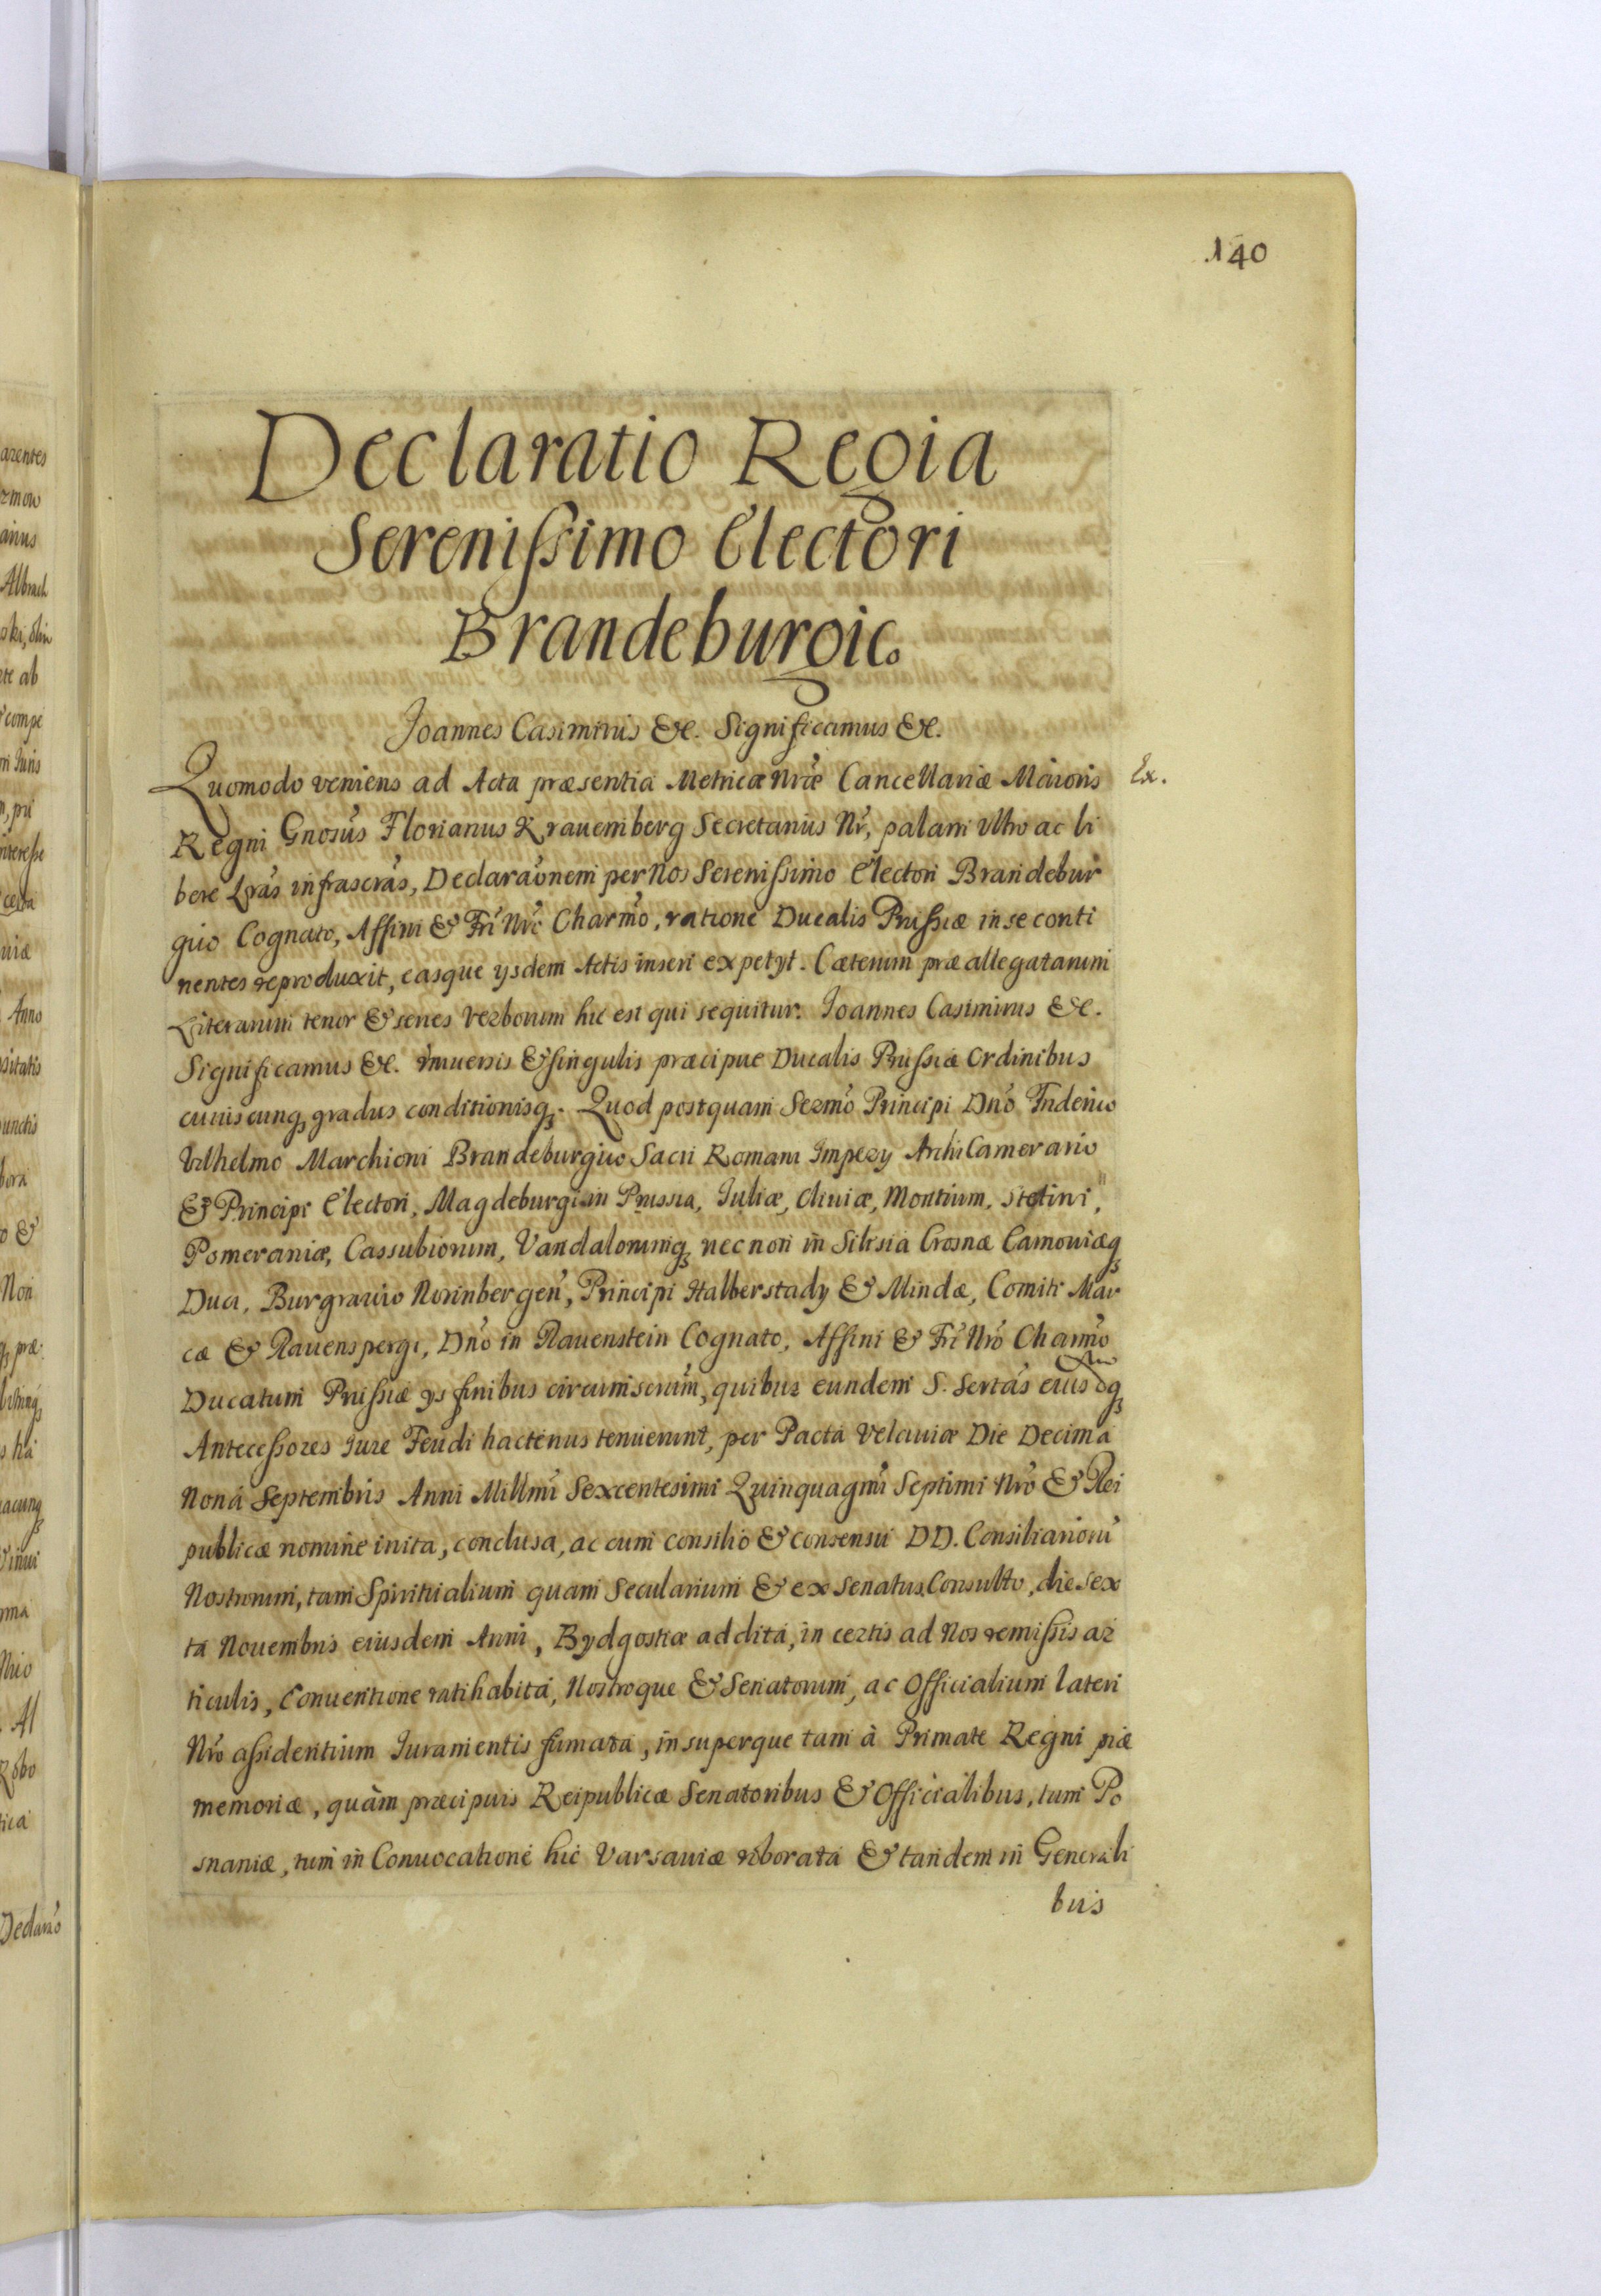 .140
Declaratio Regia
Serenissimo Electori
Brandeburgic.
Joannes Casimirus &c. Significamus &c.
Quomodo veniens ad Acta præsentia Metricæ Nræ Cancellariæ Maioris Ex.
Regni Gnosus Florianus Krauemberg Secretarius Nr, palam Vltro ac li
bere Lras infrascras, Declaraonem per Nos Serenissimo Electori Brandebur
gico Cognato, Affini & Fri Nro Charmo, ratione Ducalis Prussiæ in se conti
nentes reproduxit, easque ysdem Actis inseri expetyt. Cæterum præallegatarum
Literarum tenor & series verborum hic est qui sequitur. Joannes Casimirus &c.
Significamus &c. Vniuersis & singulis præcipue Ducalis Prussiæ Ordinibus
cuiuscunq gradus conditionisq. Quod postquam Sermo Principi Dno Friderico
Vilhelmo Marchioni Brandeburgico Sacri Romani Impery ArchiCamerario
& Principi Electori, Magdeburgi in Prussia, Juliæ, Cliuiæ, Montium, Stetini,
Pomeraniæ, Cassubiorum, Vandalorumq, nec non in Silesia Crosnæ Carnouiæq
Duci, Burgrauio Norinbergen, Principi Halberstady & Mindæ, Comiti Mar
cæ & Rauenspergi, Dno in Rauenstein Cognato, Affini & Fri Nro Charmo
Ducatum Prussiæ ys finibus circumscrum, quibus eundem S. Sertas eiusdq
Antecessores Jure Feudi hactenus tenuerunt, per Pacta Velauiæ Die Decima
Nona Septembris Anni Millmi Sexcentesimi Quinquagmi Septimi Nro & Rei
publicæ nomine inita, conclusa, ac cum consilio & consensu DD. Consiliarioru
Nostrorum, tam Spiritualium quam Secularium & ex Senatus Consulto, die sex
ta Nouembris eiusdem Anni, Bydgostiæ addita, in certis ad Nos remissis ar
ticulis, Conuentione ratihabita, Nostroque & Senatorum, ac Officialium lateri
Nro assidentium Juramentis firmata, insuperque tam à Primate Regni piæ
memoriæ, quàm præcipuis Reipublicæ Senatoribus & Officialibus, tum Po
snaniæ, tum in Conuocatione hic Varsauiæ roborata & tandem in Generali
bus